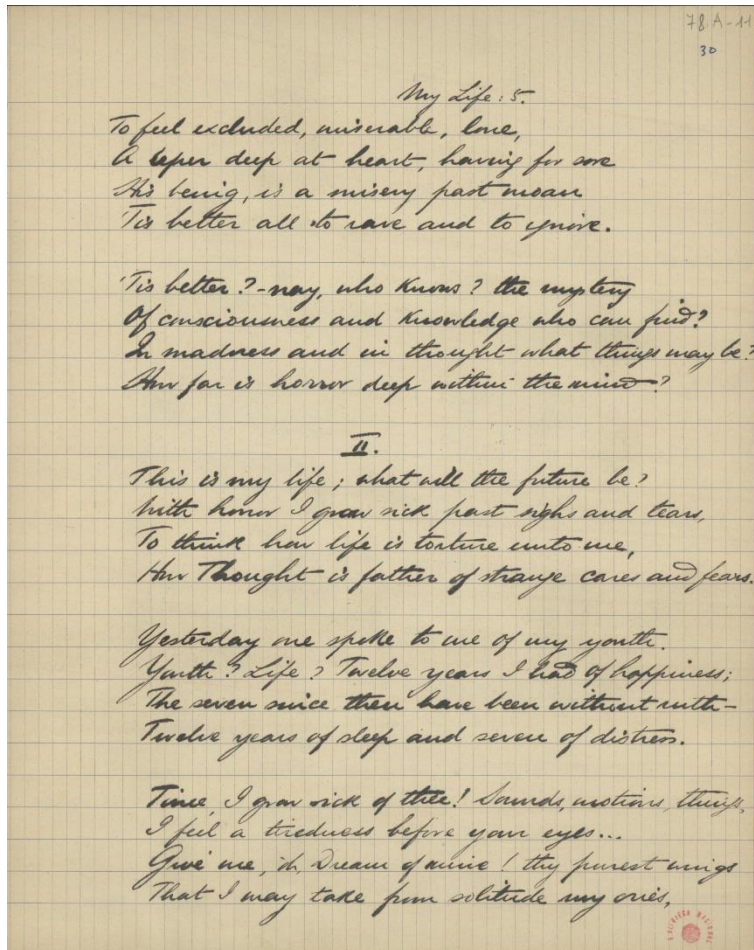 78A-11
30
My Life: 5.
To feel excluded, miserable, lone,
A leper deep at heart, having for sore
His being, is a misery past moan
'Tis better all to rave and to ignore.
'Tis better? - nay, who knows? the mystery
Of consciousness and knowledge who can find?
In madness and in thought what things may be?
How far is horror deep within the mind?
II.
This is my life; what will the future be?
With horror I grow sick past sighs and tears,
To think how life is torture unto me,
How Thought is father of strange cares and fears.
Yesterday one spoke to me of my youth.
Youth? Life? Twelve years I had of happiness;
The seven since then have been without ruth -
Twelve years of sleep and seven of distress.
Time, I grow sick of thee! Sounds, motions, things,
I feel a tiredness before your eyes...
Give me, oh, Dream of mine! thy purest wings
That I may take from solitude my cries,
BIBLIOTECA NACIONAL